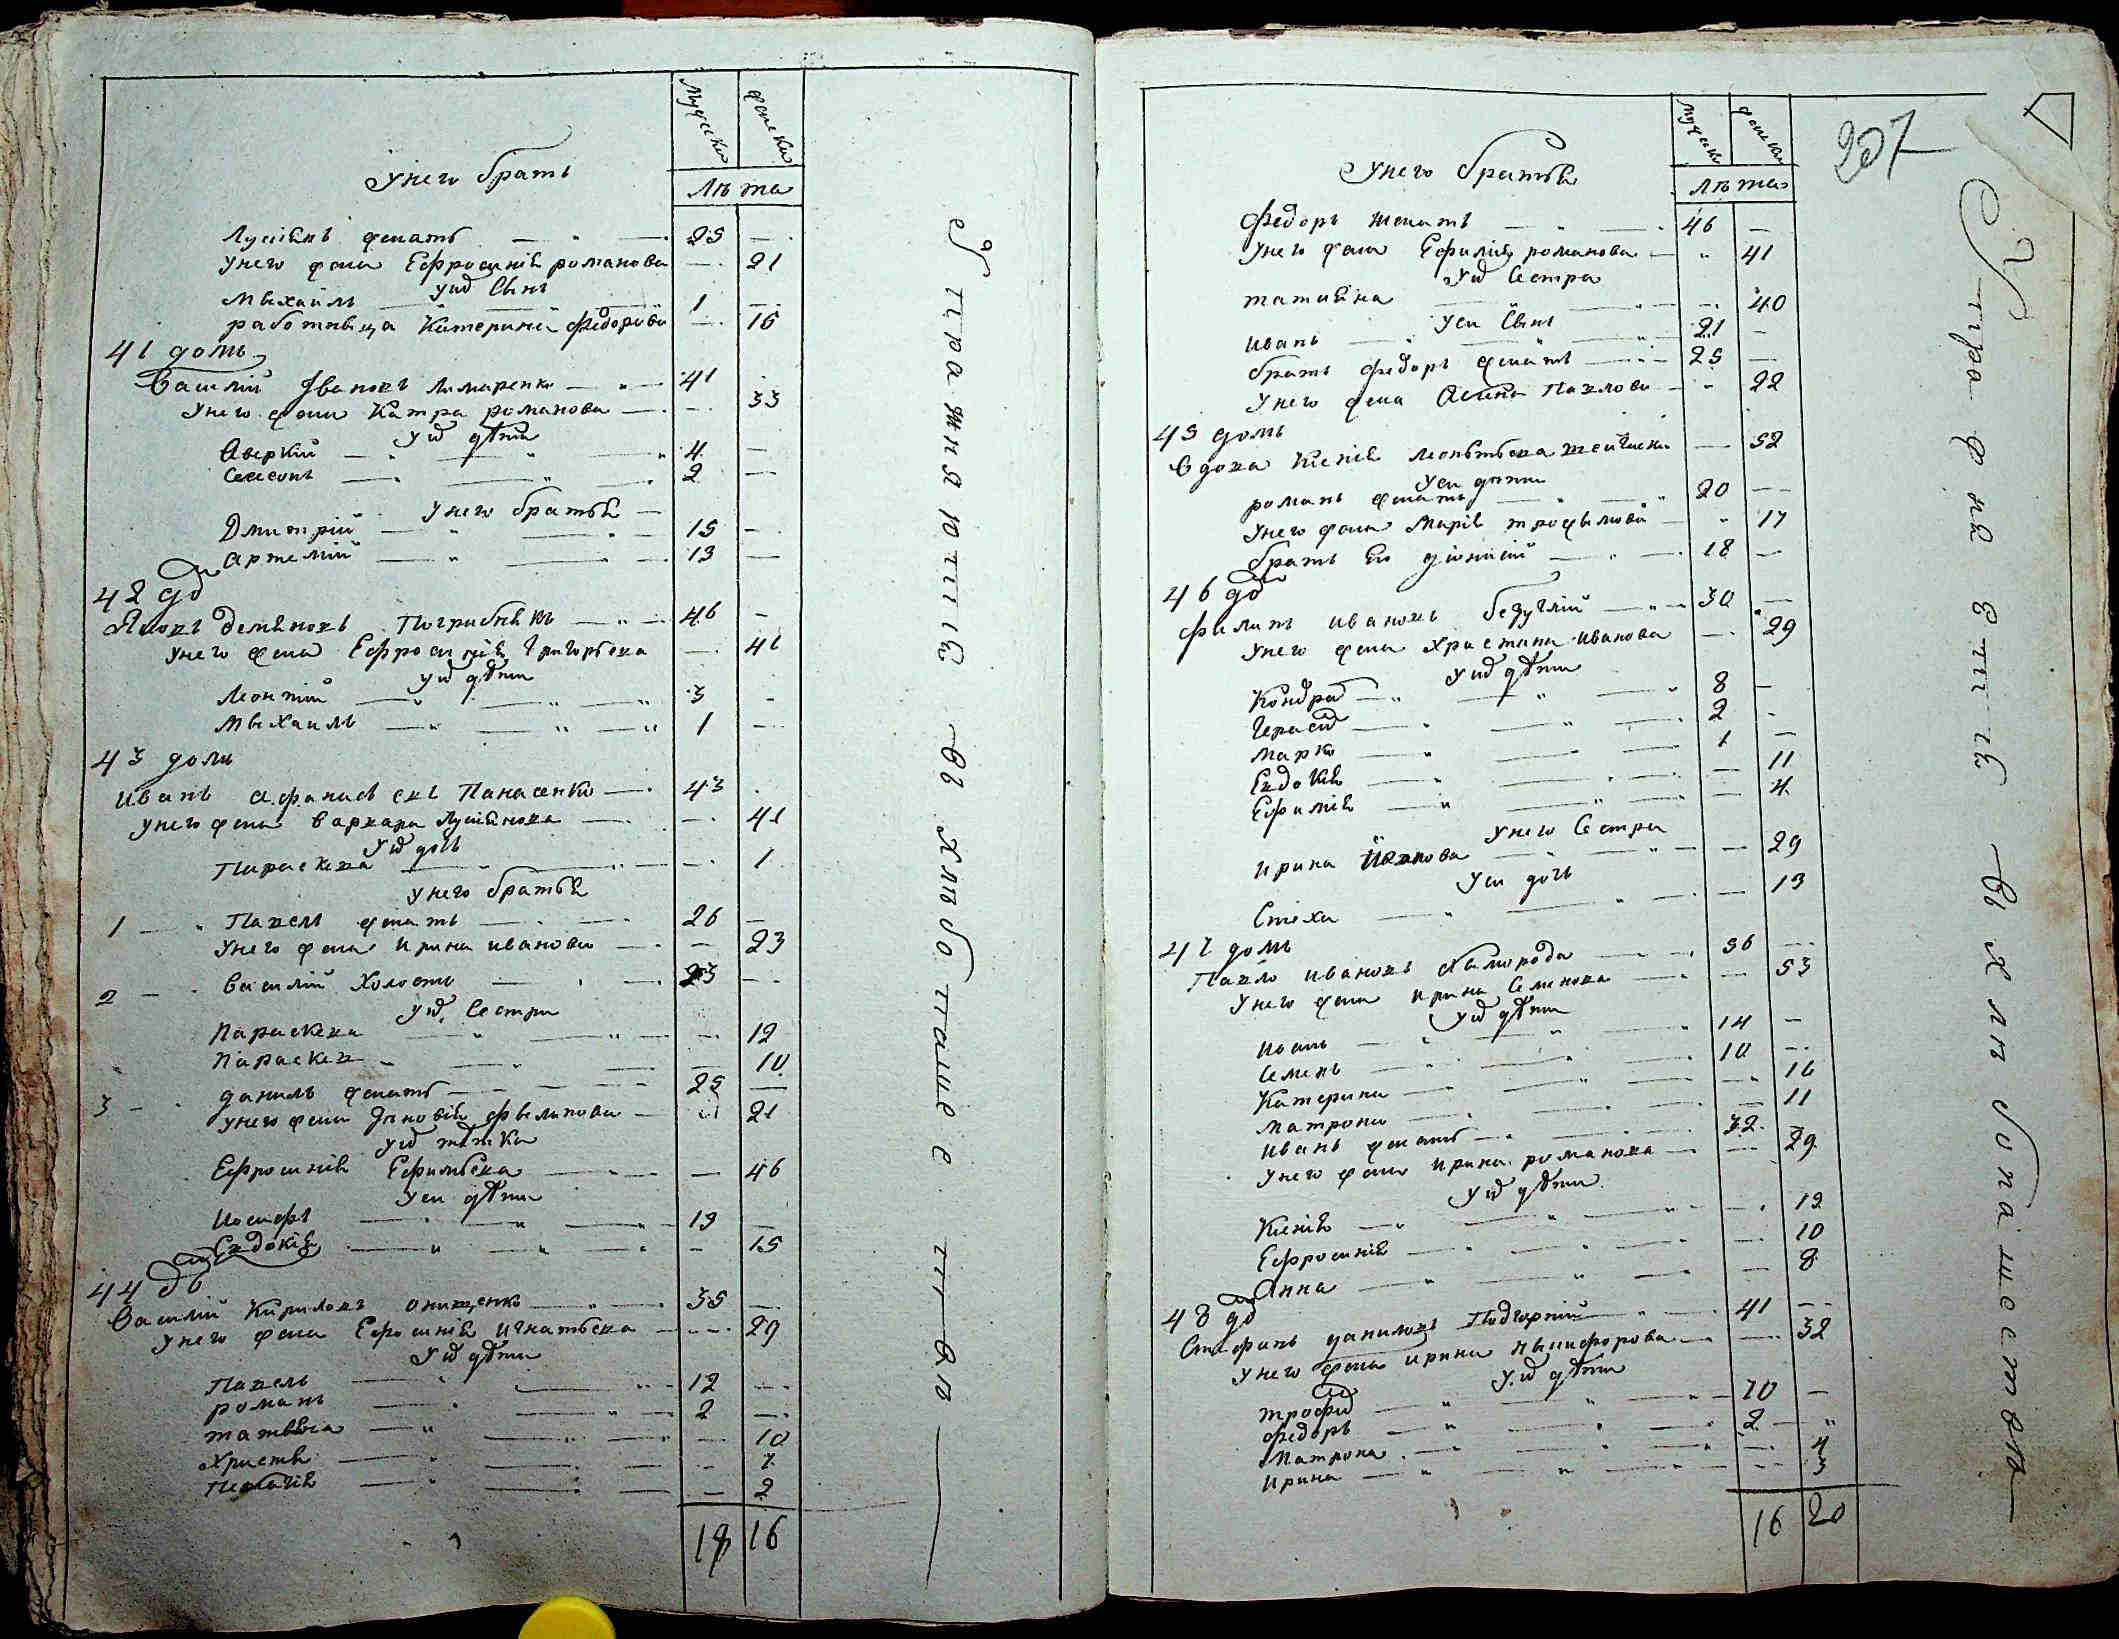 Мужеска
женска
лѣта
у него братъ
Лукіянъ женатъ — 25 —
у него жена Ефросинія романова — 21
у ихъ сынъ
Мыхайлъ — 1 —
работныца Катерина Федорова — 16
41 домъ
Василій Івановъ Лимаренко — 41
у него жена Катра романова — 33
у ихъ дѣти
Аверкій — 4 —
Самсонъ — 2 —
у него братья —
Дмитрій — 15 —
Артемій — 13 —
42 до
Яковъ Деменовъ Погрибнякъ — 46 —
у него жена Ефросинія Григорьева — 41
у ихъ дѣти
Леонтій — 3 —
Мыхаилъ — 1 —
43 домъ
иванъ афанасіевъ Панасенко — 43
у него жена варвара Лукіянова — 41
у ихъ дочь
Параскева — 1
у него братья
1 — Павелъ женатъ — 26 —
у него жена ирина иванова — 23
2 — василій холостъ — 23 —
у ихъ сестри
Параскева — 12
Параскев — 10
3 — данилъ женатъ — 25 —
у него жена Зіновія Фылипова — 21
у ихъ тітка
Ефросинія Ефимьева — 46
у еи дѣти
иосифъ — 19 —
Евдокія — 15
44 до
Василій Кириловъ онищенко — 35 —
у него жена Ефросинія игнатьева — 29
у ихъ дѣти
Павелъ — 12 —
романъ — 2 —
татьяна — 10
Христя — 7
Пелагія — 2
18 16
Утиражняющіе въ хлѣбопашестве
Мужеска
женска
лѣта
207
у него братья
Федоръ женатъ — 46 —
у него жена Ефимія романова — 41
у ихъ сестра
татіяна — 40
у еи сынъ
иванъ — 21 —
братъ федоръ женатъ — 25 —
у него жена Павлова — 22
45 домъ
вдова Ксенія леонтьева — 52
у еи дѣти
романъ женатъ — 20 —
у него жена Марія трофымова — 17
братъ Его діонисій — 18 —
46 до
филипъ ивановъ — 30 —
у него жена Христина иванова — 29
у ихъ дѣти
Кондрат — 8 —
Герасим — 2 —
Марко — 1 —
Евдокія — 11
Ефимія — 4
у него сестра
ирина іванова — 29
у еи дочь
Стеха — 13
47 домъ
Павло ивановъ — 56 —
у него жена ирина семенова — 53
у ихъ дѣти
иванъ — 14 —
семенъ — 10 —
Катерина — 16
Матрона — 11
иванъ женатъ — 32 —
у него жена ирина романова — 29
у ихъ дѣти
Ксенія — 12
Ефросинія — 10
Анна — 8
48 до
Стефанъ даниловъ Подгорній — 41 —
у него жена ирина ныкифорова — 32
у ихъ дѣти
трофим — 10 —
федоръ — 2 —
Матрона — 4
ирина — 3
16 20